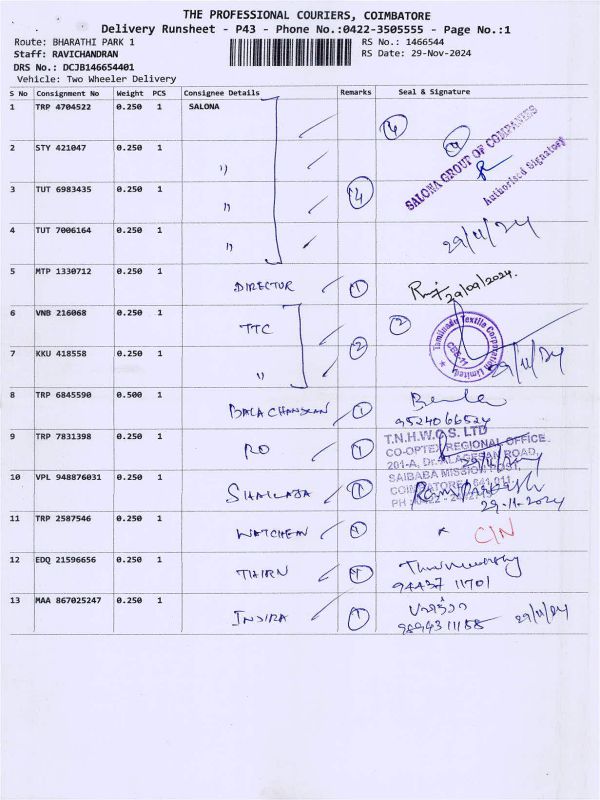 THE PROFESSIONAL COURIERS, COIMBATORE
Delivery Runsheet - P43 - Phone No.:0422-3505555 - Page No.:1
Route: BHARATHI PARK 1 RS No.: 1466544
Staff: RAVICHANDRAN RS Date: 29-Nov-2024
DRS No.: DCJB146654401
Vehicle: Two Wheeler Delivery
S No Consignment No Weight PCS Consignee Details Remarks Seal & Signature
1 TRP 4704522 0.250 1 SALONA
SALONA GROUP OF COMPANIES
Authorised Signatory
2 STY 421047 0.250 1 "
3 TUT 6983435 0.250 1 " 4
4 TUT 7006164 0.250 1 " 29/11/24
5 MTP 1330712 0.250 1 DIRECTOR 1 29/09/2024.
6 VNB 216068 0.250 1 TTC 2
Tamilnadu Textile Corporation Limited
CBE-11
7 KKU 418558 0.250 1 " 2 29/11/24
8 TRP 6845590 0.500 1 BALACHANDRAN 1
9524066524
9 TRP 7831398 0.250 1 RO 1
T.N.H.W.C.S. LTD
CO-OPTEX REGIONAL OFFICE
201-A, Dr. ALAGESAN ROAD,
SAIBABA MISSION POST,
10 VPL 948876031 0.250 1 SHAILAJA 1
29-11-2024
11 TRP 2587546 0.250 1 WATCHMAN 1 C/N
12 EDQ 21596656 0.250 1 THIRN 1
94437 11701
13 MAA 867025247 0.250 1 INDIRA 1 29/11/24